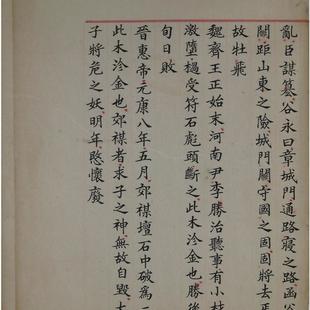 亂臣謀篡谷永曰章城門通路寢之路函谷
關距山東之險城門關守國之固固將去焉
故牡飛
魏齊王正始末河南尹李勝治聽事有小材
激墮檛受符石彪頭斷之此木沴金也勝後
旬日敗
晉惠帝元康八年五月郊禖壇石中破為
此木沴金也郊禖者求子之神無故自毀
子將危之妖明年愍懷廢